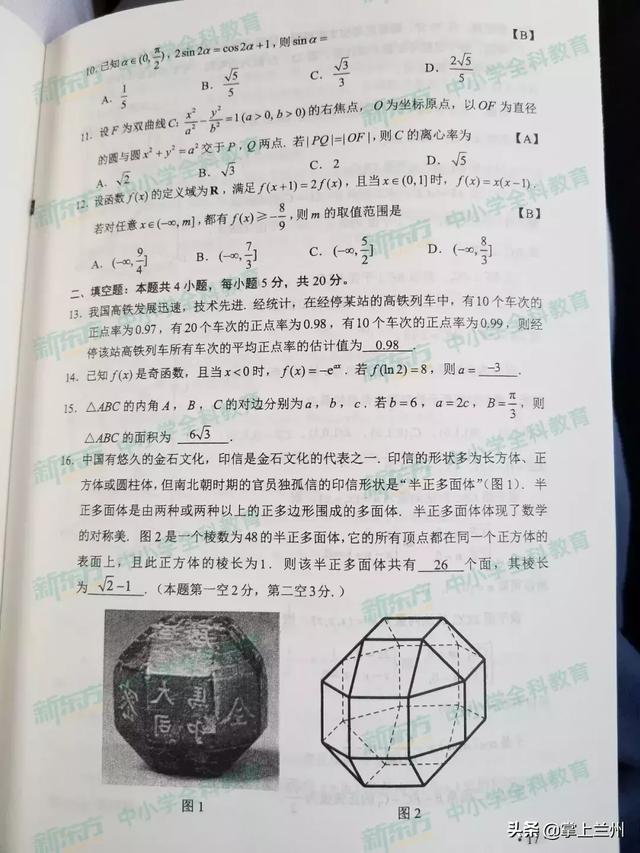 10. 已知 α∈(0, π/2), 2sin2α=cos2α+1, 则 sinα= 【B】
A. 1/5 B. √5/5 C. √3/3 D. 2√5/5
11. 设 F 为双曲线 C: x²/a² - y²/b² = 1(a>0, b>0) 的右焦点, O 为坐标原点, 以 OF 为直径
的圆与圆 x²+y²=a² 交于 P, Q 两点. 若|PQ|=|OF|, 则 C 的离心率为 【A】
A. √2 B. √3 C. 2 D. √5
12. 设函数 f(x) 的定义域为 R, 满足 f(x+1)=2f(x), 且当 x∈(0,1] 时, f(x)=x(x-1).
若对任意 x∈(-∞, m], 都有 f(x)≥-8/9, 则 m 的取值范围是 【B】
A. (-∞, 9/4] B. (-∞, 7/3] C. (-∞, 5/2] D. (-∞, 8/3]
二、填空题: 本题共 4 小题, 每小题 5 分, 共 20 分。
13. 我国高铁发展迅速, 技术先进. 经统计, 在经停某站的高铁列车中, 有 10 个车次的
正点率为 0.97, 有 20 个车次的正点率为 0.98, 有 10 个车次的正点率为 0.99, 则经
停该站高铁列车所有车次的平均正点率的估计值为 0.98 .
14. 已知 f(x) 是奇函数, 且当 x<0 时, f(x)=-e^{ax}. 若 f(ln2)=8, 则 a= -3 .
15. △ABC 的内角 A, B, C 的对边分别为 a, b, c. 若 b=6, a=2c, B=π/3, 则
△ABC 的面积为 6√3 .
16. 中国有悠久的金石文化, 印信是金石文化的代表之一. 印信的形状多为长方体、正
方体或圆柱体, 但南北朝时期的官员独孤信的印信形状是“半正多面体”(图 1). 半
正多面体是由两种或两种以上的正多边形围成的多面体. 半正多面体体现了数学
的对称美. 图 2 是一个棱数为 48 的半正多面体, 它的所有顶点都在同一个正方体的
表面上, 且此正方体的棱长为 1. 则该半正多面体共有 26 个面, 其棱长
为 √2-1 . (本题第一空 2 分, 第二空 3 分.)
图 1
图 2
17
新东方 中小学全科教育
头条 @掌上兰州